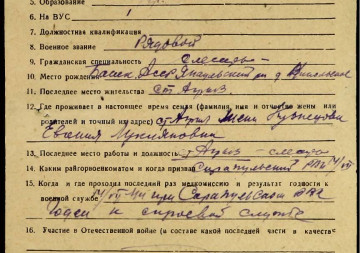 5. Образование
6. На ВУС 1
7. Должностная квалификация
8. Военное звание Рядовой
9. Гражданская специальность Слесарь
10. Место рождения Башк. Асср Янаульский р-н д
11. Последнее место жительства ст. Агрыз
12. Где проживает в настоящее время семья (фамилия, имя и отчество жены или
родителей и точный адрес) ст. Агрыз
Евгения Лукияновна
13. Последнее место работы и должность Агрыз – слесарь
14. Каким райгорвоенкоматом и когда призван Сарапульский РВК
15. Когда и где проходил последний раз медкомиссию и результат годности к
военной службе при Сарапульском РВК
годен к строевой службе
16. Участие в Отечественной войне (в составе какой последней части в качестве